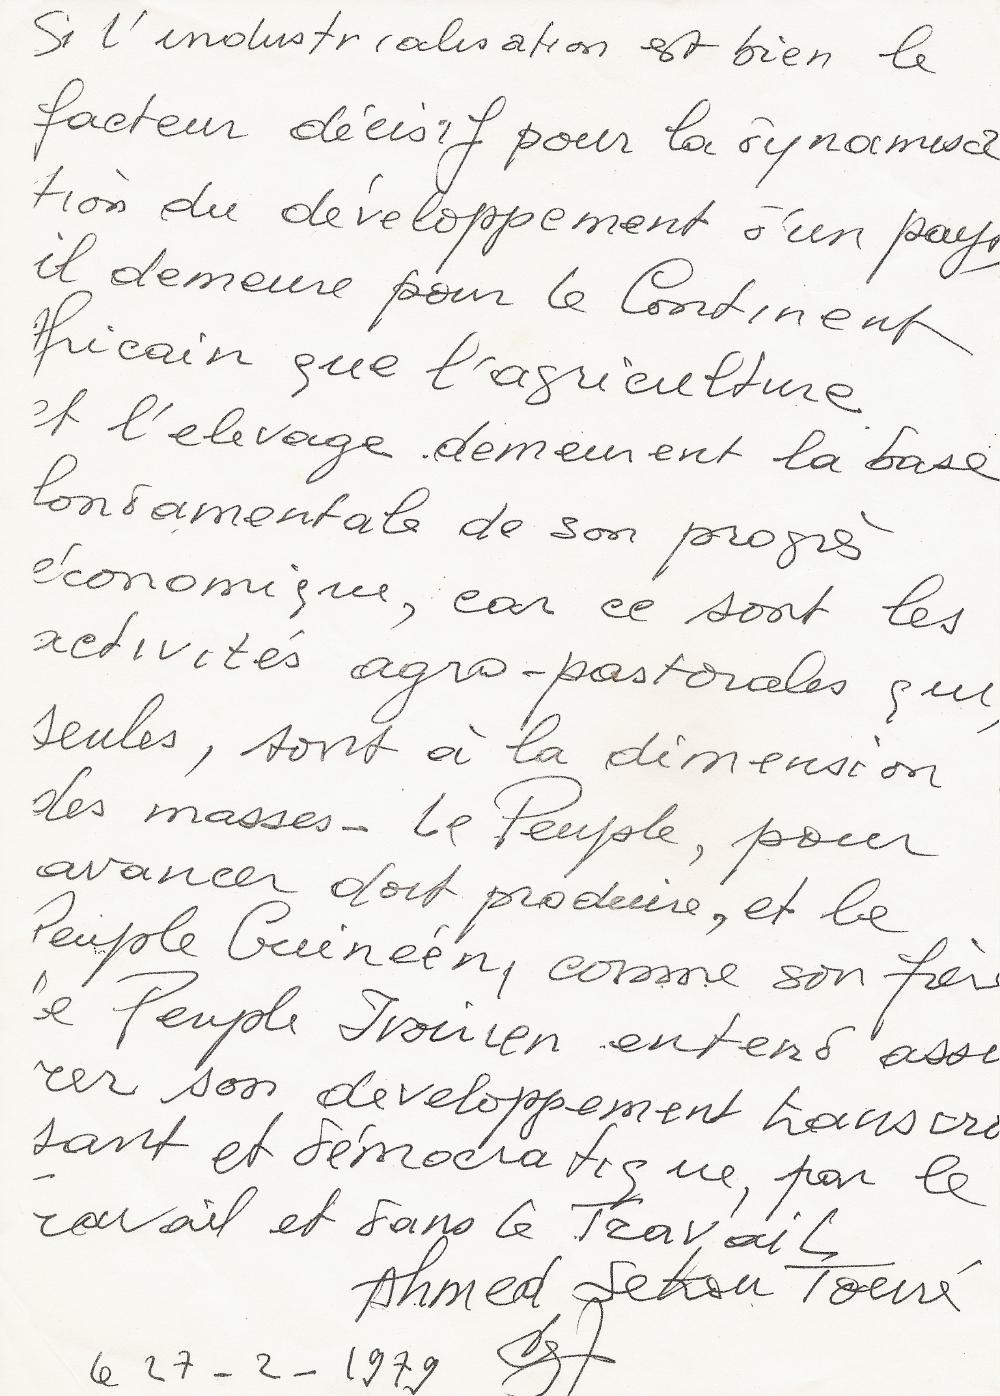 Si l'industrialisation est bien le
facteur décisif pour la dynamisa
tion du développement d'un pays
il demeure pour le Continent
Africain que l'agriculture
et l'elevage demeurent la base
fondamentale de son progrès
économique, car ce sont les
activités agro-pastorales qui,
seules, sont à la dimension
des masses - Le Peuple, pour
avancer doit produire, et le
Peuple Guinéen, comme son frère
le Peuple Ivoirien entend assu
rer son developpement
sant et démocratique, par le
Travail et dans le Travail
Ahmed Sekou Touré
le 27-2-1979